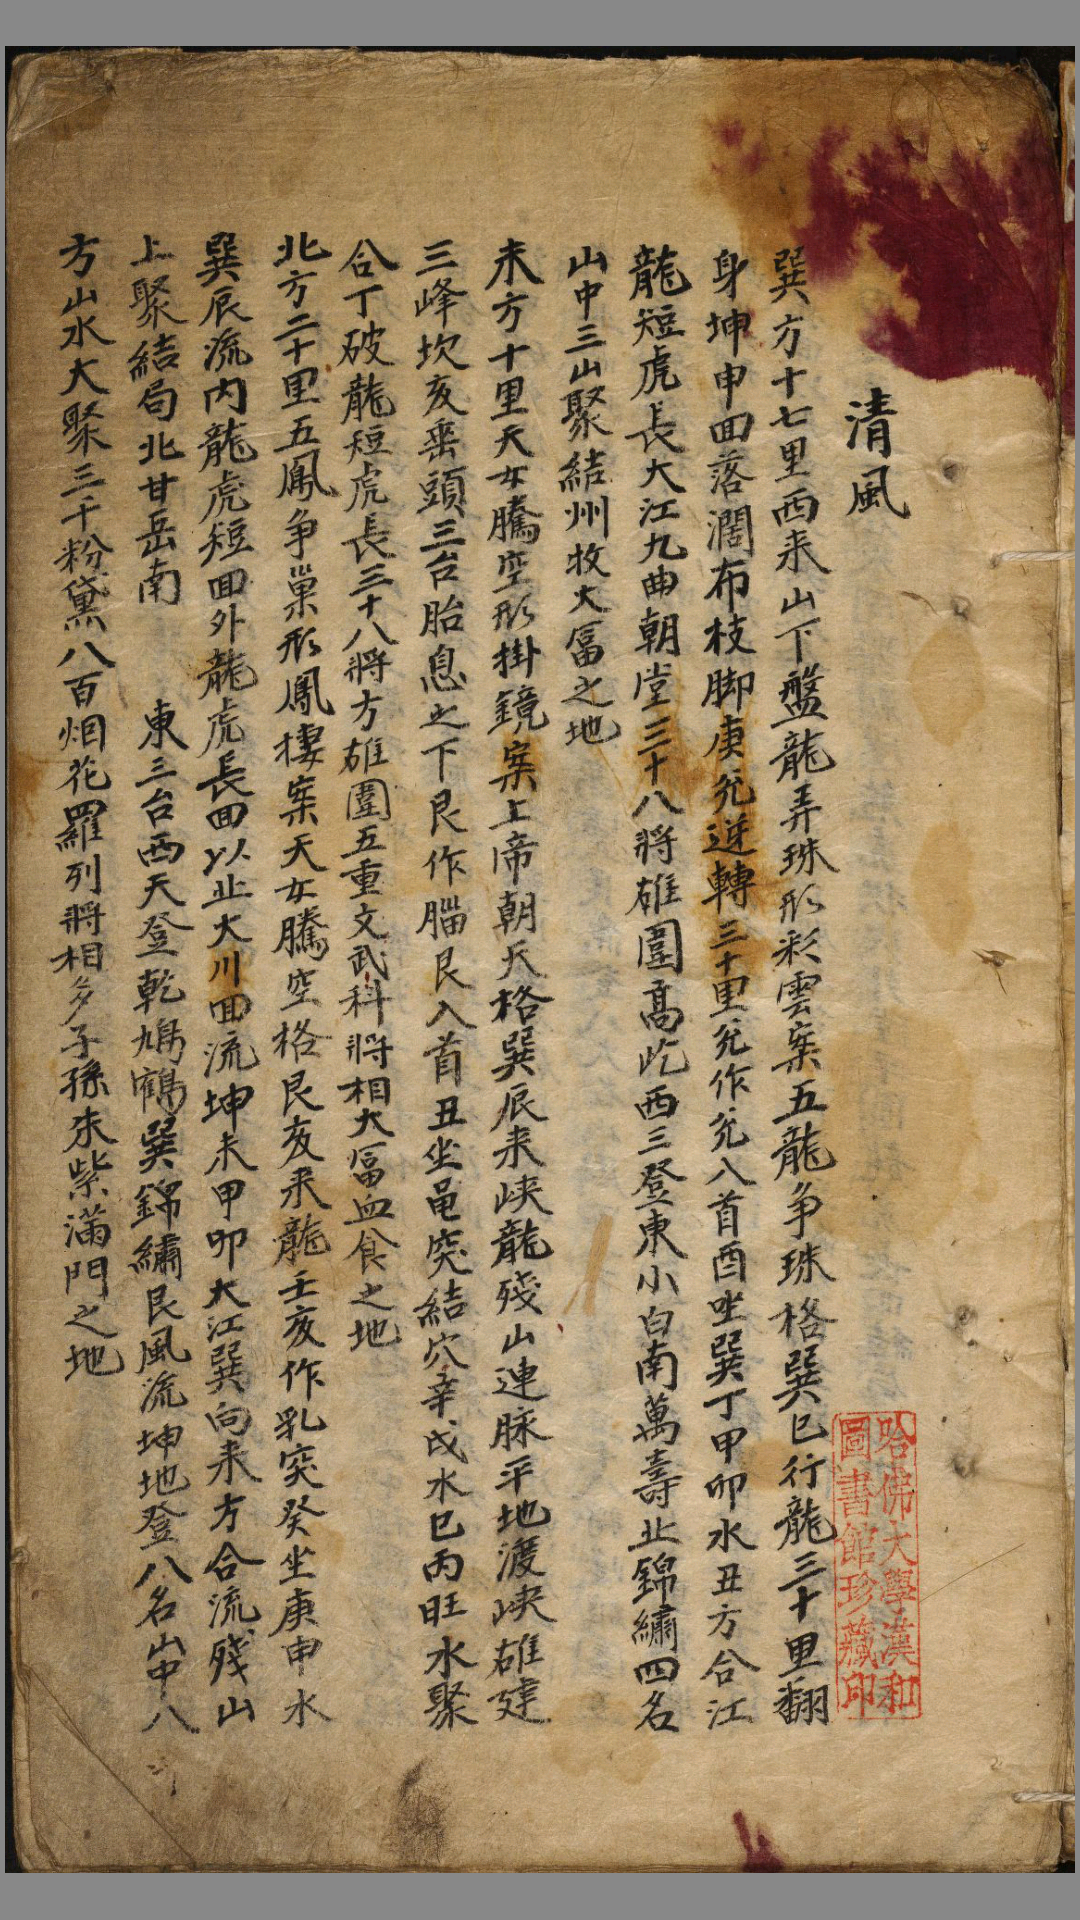 清風
巽方十七里酉来山下盤龍弄珠形彩雲案五龍争珠格巽巳行龍三十里翻
身坤申回落濶布枝脚庚兊逆轉三十里兊作兊入首酉坐巽丁甲卯水丑方合江
龍短虎長大江九曲朝堂三十八將雄圍高屹西三登東小白南萬壽北錦繡四名
山中三山聚結州牧大冨之地
未方十里天女騰空形掛鏡案上帝朝天格巽辰来峡龍殘山連脉平地渡峡雄建
三峰坎亥垂頭三台胎息之下艮作腦艮入首丑坐黾突結穴辛戌水巳丙旺水聚
合丁破龍短虎長三十八將方雄圍五重文武科將相大冨血食之地
北方二十里五鳳争巢形鳳棲案天女騰空格艮亥来龍壬亥作乳突癸坐庚申水
巽辰流内龍虎短回外龍虎長回以止大川回流坤未甲卯大江巽向来方合流殘山
上聚結局北甘岳南 東三台西天登乾鳩鶴巽錦繡艮風流坤地登八名山中八
方山水大聚三千粉黛八百烟花羅列將相多子孫朱紫滿門之地
哈佛大學漢和
圖書館珍藏印